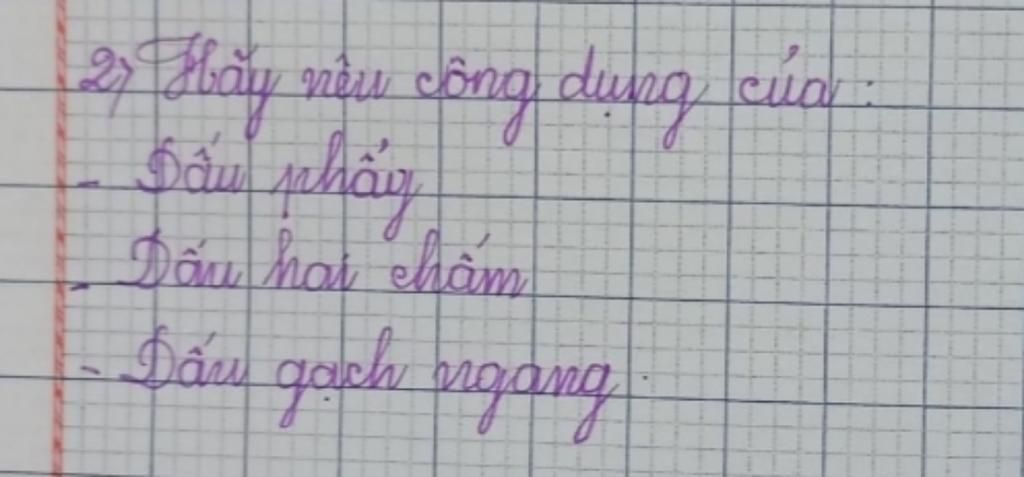 2) Hãy nêu công dụng của:
- Dấu phẩy
- Dấu hai chấm
- Dấu gạch ngang.